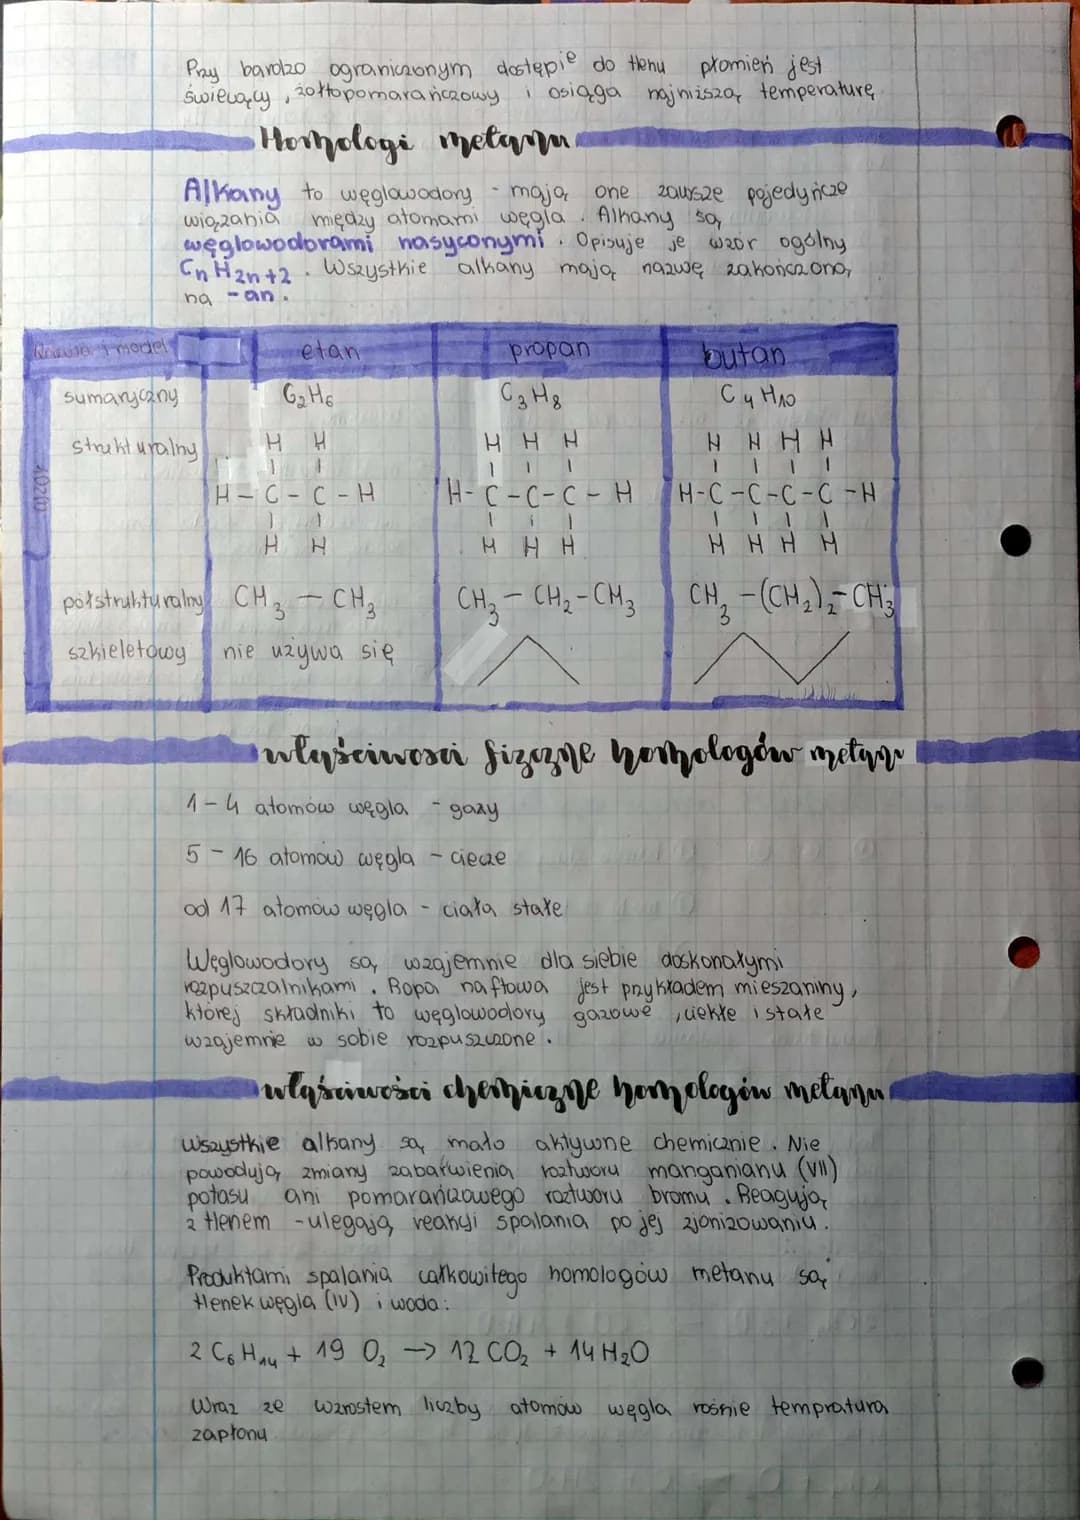 Przy bardzo ograniczonym dostępie do tlenu płomień jest
świecący, żółtopomarańczowy i osiąga najniższą temperaturę
Homologi metanu
Alkany to węglowodory - mają one zawsze pojedyńcze
wiązania między atomami węgla. Alkany są
węglowodorami nasyconymi. Opisuje je wzór ogólny
CnH2n+2. Wszystkie alkany mają nazwę zakończoną
na -an.
Nazwa i model etan propan butan
sumaryczny C2H6 C3H8 C4H10
strukturalny H H H H H H H H H
H-C-C-H H-C-C-C-H H-C-C-C-C-H
H H H H H H H H H
półstrukturalny CH3-CH3 CH3-CH2-CH3 CH3-(CH2)2-CH3
szkieletowy nie używa się
właściwości fizczne homologów metanu
1-4 atomów węgla - gazy
5-16 atomów węgla - ciecze
od 17 atomów węgla - ciała stałe
Węglowodory są wzajemnie dla siebie doskonałymi
rozpuszczalnikami. Ropa naftowa jest przykładem mieszaniny,
której składniki to węglowodory gazowe, ciekłe i stałe
wzajemnie w sobie rozpuszczone.
właściwości chemiczne homologów metanu
Wszystkie alkany są mało aktywne chemicznie. Nie
powodują zmiany zabarwienia roztworu manganianu (VII)
potasu ani pomarańczowego roztworu bromu. Reagują
z tlenem - ulegają reakcji spalania po jej zjonizowaniu.
Produktami spalania całkowitego homologów metanu są
tlenek węgla (IV) i woda:
2 C6H14 + 19 O2 → 12 CO2 + 14 H2O
Wraz ze wzrostem liczby atomów węgla rośnie tempratura
zapłonu